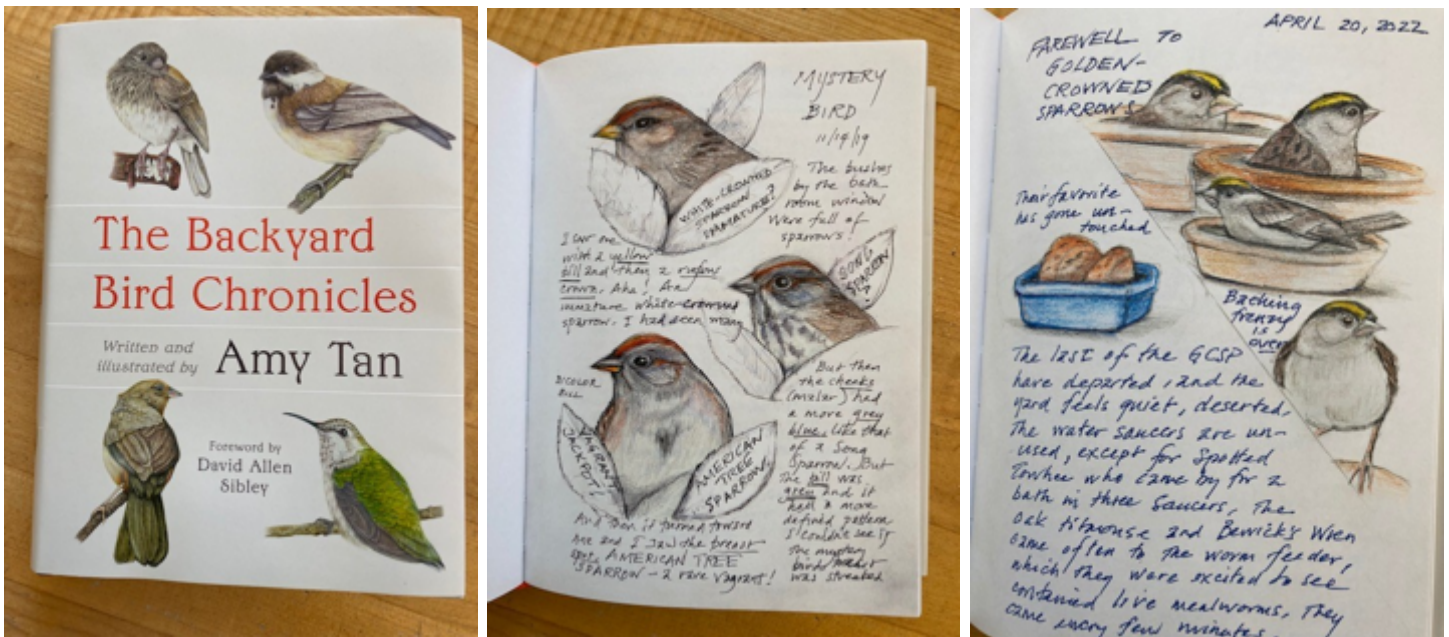 The Backyard
Bird Chronicles
Written and
illustrated by
Amy Tan
Foreword by
David Allen
Sibley
MYSTERY
BIRD
11/19/19
The bushes
by the bath
room window
were full of
sparrows!
WHITE-CROWNED
SPARROW
IMMATURE?
I saw one
with a yellow
bill and then a rufous
crown. Aha! An
immature white-crowned
sparrow. I had seen many
SONG
SPARROW
?
But then
the cheeks
(malar) had
a more grey
blue, like that
of a Song
Sparrow. But
the bill was
grey and it
had a more
defined pattern
I couldn't see if
the mystery
bird's
was streaked
BICOLOR
BILL
VAGRANT
JACKPOT!
AMERICAN
TREE
SPARROW!
And then it turned toward
me and I saw the breast
spot. AMERICAN TREE
SPARROW - a rare vagrant!
APRIL 20, 2022
FAREWELL TO
GOLDEN-
CROWNED
SPARROWS
Their favorite
has gone un-
touched
Bathing
frenzy
is
over
The last of the GCSP
have departed, and the
yard feels quiet, deserted.
The water saucers are un-
used, except for Spotted
Towhee who came by for a
bath in three saucers, The
Oak titmouse and Bewick's Wren
came often to the worm feeder,
which they were excited to see
contained live mealworms. They
came every few minutes.